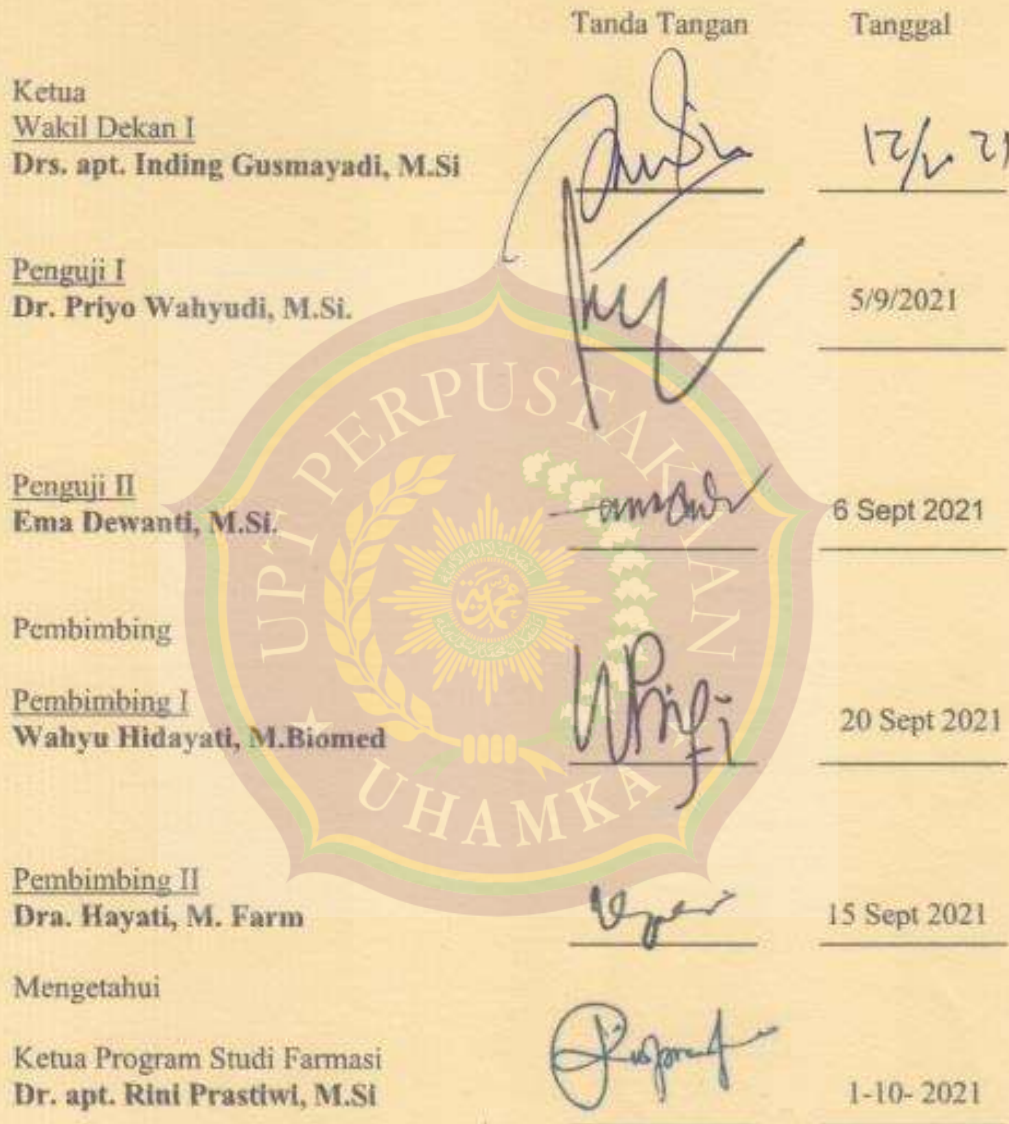 Tanda Tangan Tanggal
Ketua
Wakil Dekan I
Drs. apt. Inding Gusmayadi, M.Si
Penguji I
Dr. Priyo Wahyudi, M.Si. 5/9/2021
Penguji II
Ema Dewanti, M.Si. 6 Sept 2021
Pembimbing
Pembimbing I
Wahyu Hidayati, M.Biomed 20 Sept 2021
Pembimbing II
Dra. Hayati, M. Farm 15 Sept 2021
Mengetahui
Ketua Program Studi Farmasi
Dr. apt. Rini Prastiwi, M.Si 1-10- 2021
UPT PERPUSTAKAAN
UHAMKA